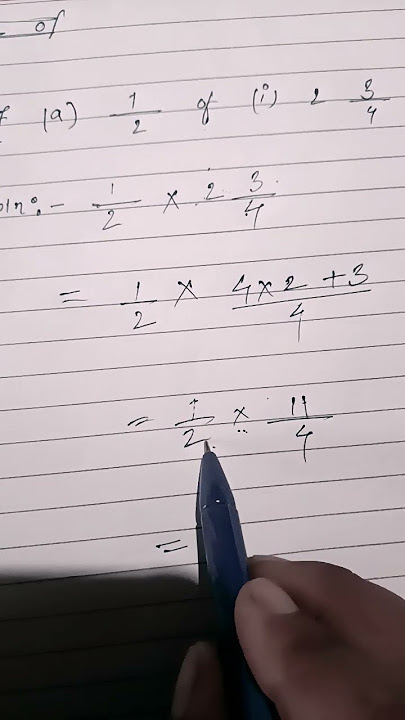 of
(a) 1/2 of (i) 2 3/4
oln:- 1/2 × 2 3/4
= 1/2 × 4×2+3/4
= 1/2 × 11/4
=